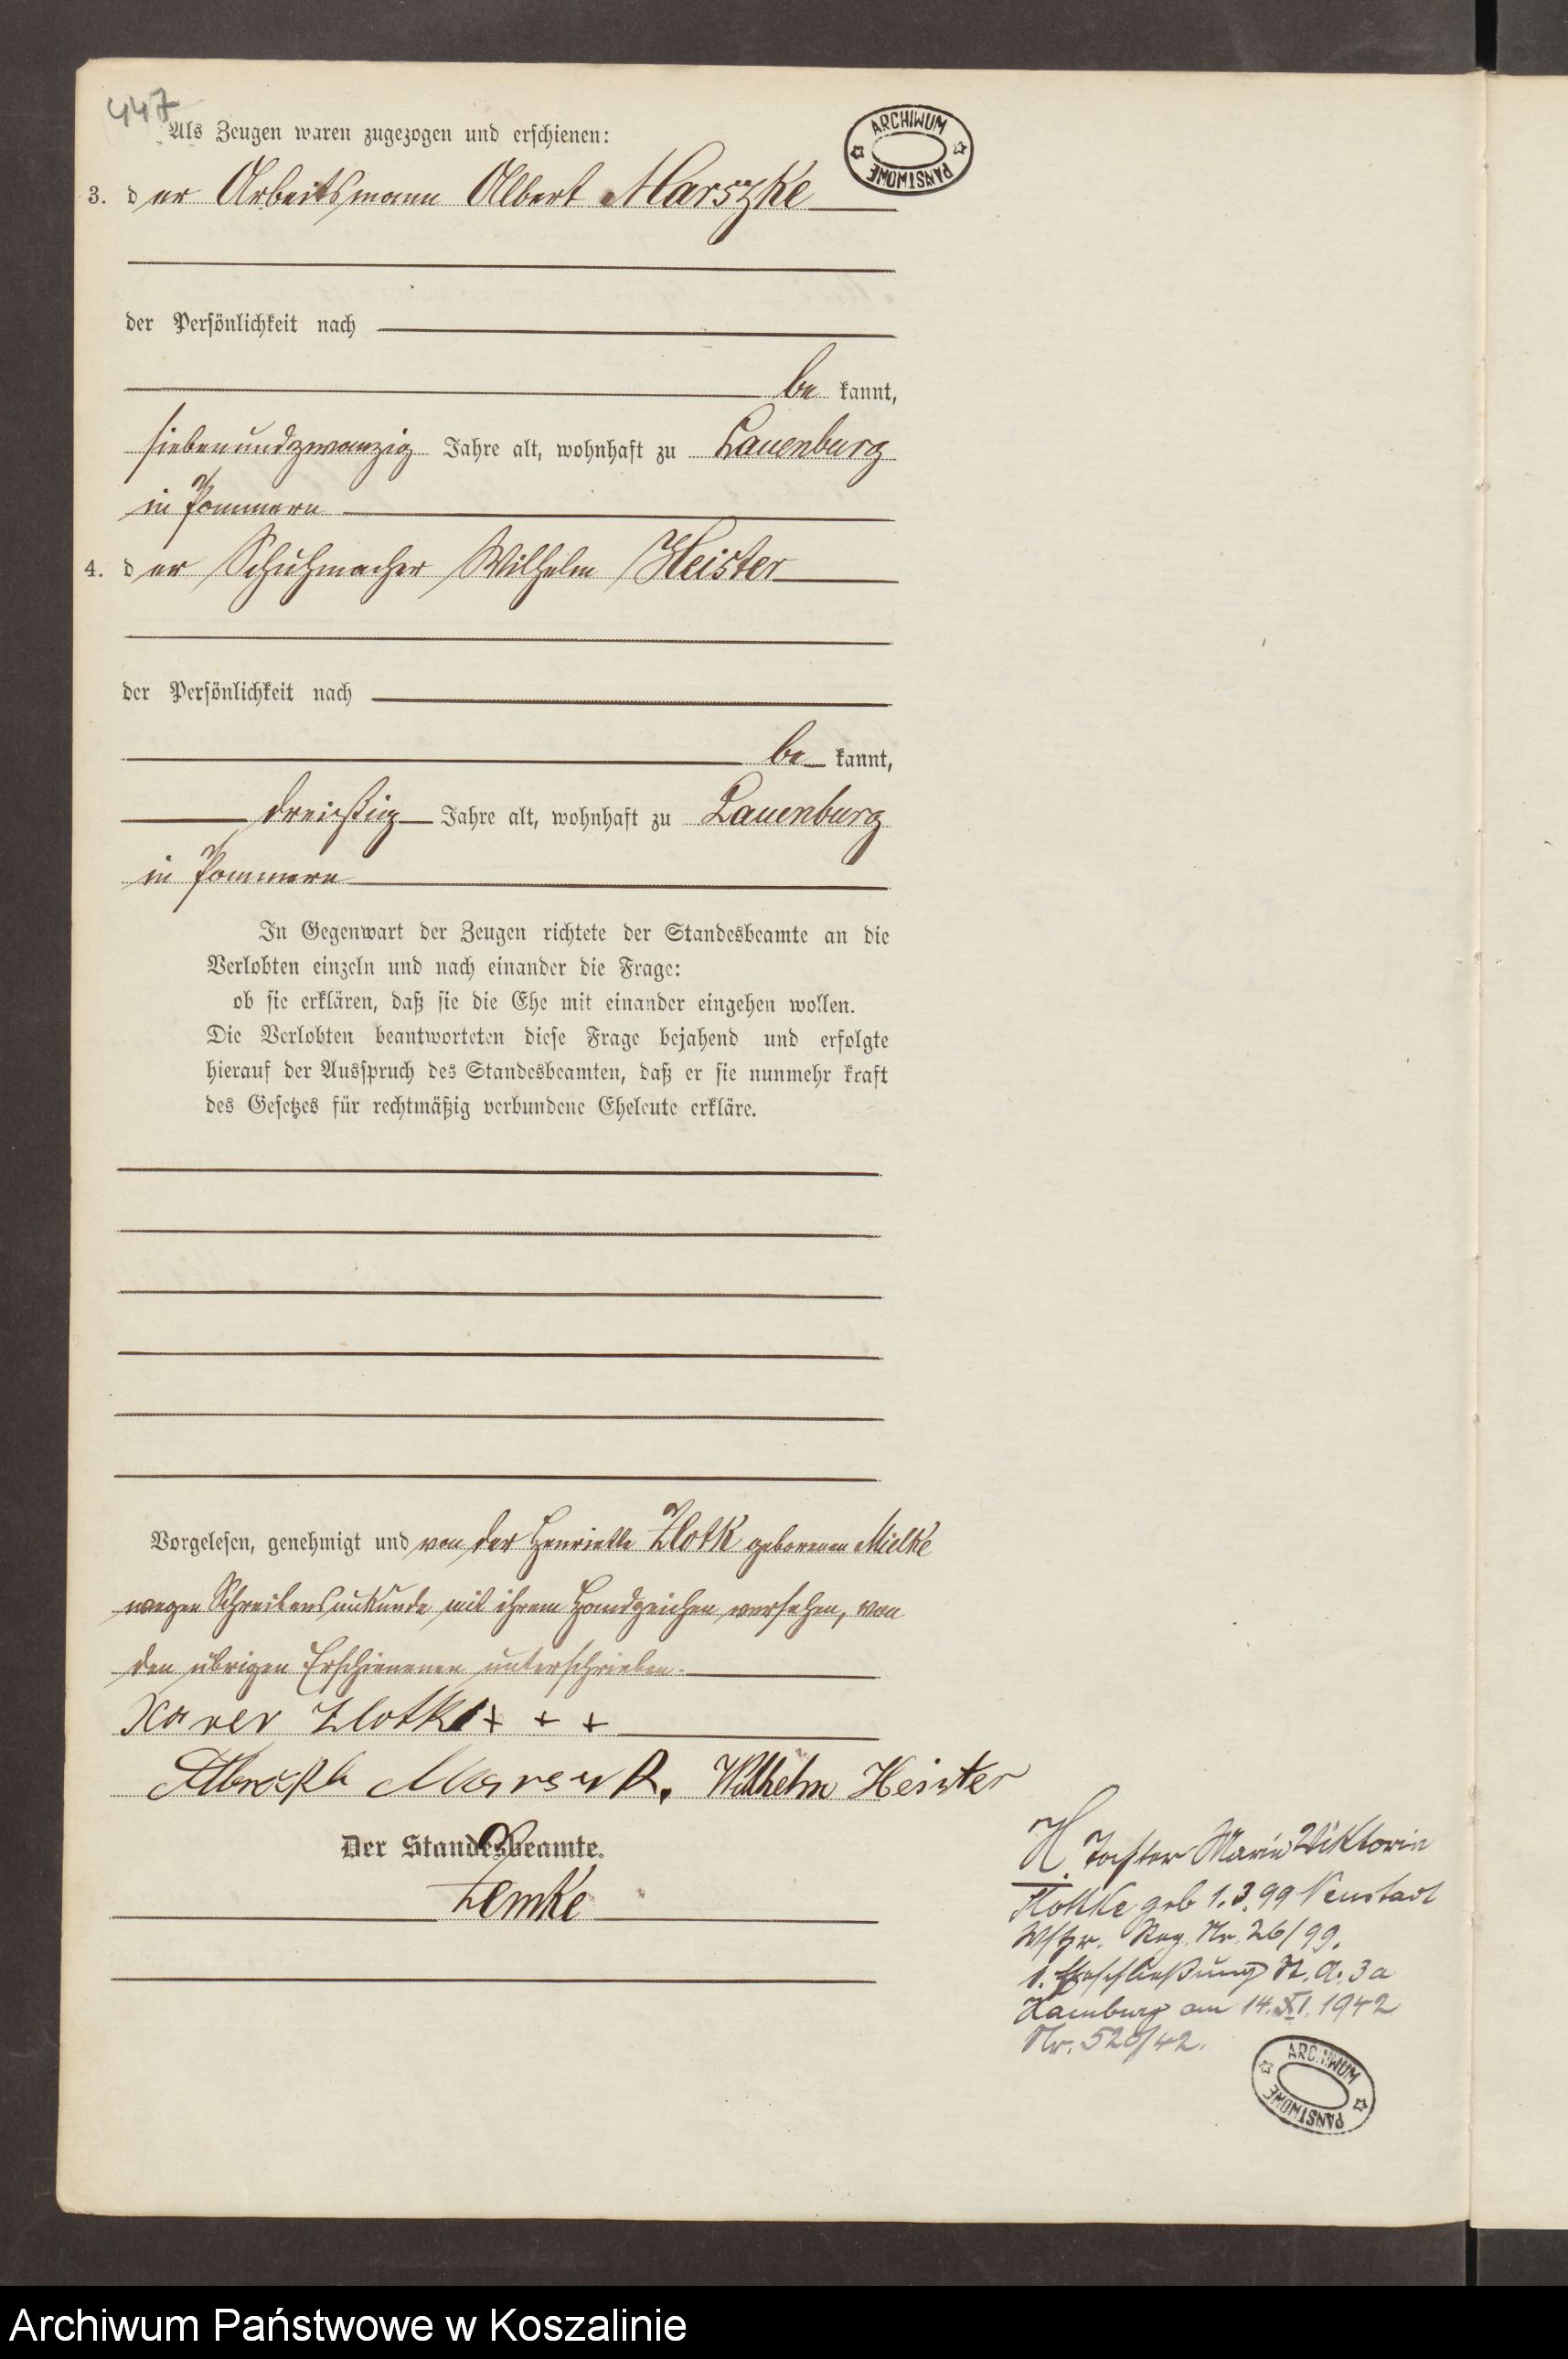 447
Als Zeugen waren zugezogen und erschienen:
ARCHIWUM PAŃSTWOWE
3. der Arbeitsmann Albert Marszke
der Persönlichkeit nach
be kannt,
siebenundzwanzig Jahre alt, wohnhaft zu Lauenburg
in Pommern
4. der Schuhmacher Wilhelm Heister
der Persönlichkeit nach
be kannt,
dreißig Jahre alt, wohnhaft zu Lauenburg
in Pommern
In Gegenwart der Zeugen richtete der Standesbeamte an die
Verlobten einzeln und nach einander die Frage:
ob sie erklären, daß sie die Ehe mit einander eingehen wollen.
Die Verlobten beantworteten diese Frage bejahend und erfolgte
hierauf der Ausspruch des Standesbeamten, daß er sie nunmehr kraft
des Gesetzes für rechtmäßig verbundene Eheleute erkläre.
Vorgelesen, genehmigt und von der Henriette Zlotk geborenen Mielke
wegen Schreibensunkunde mit ihrem Handzeichen versehen, von
den übrigen Erschienenen unterschrieben.
Xaver Zlotk + + +
Wilhelm Heister
Der Standesbeamte.
Lemke
H. Tochter Marie Viktoria
geb 1.3.99 Neustadt
Wstpr. Reg. Nr. 26/99.
1. Eheschließung St. A. 3a
Hamburg am 14.XI.1942
Nr. 520/42.
ARCHIWUM PAŃSTWOWE
Archiwum Państwowe w Koszalinie